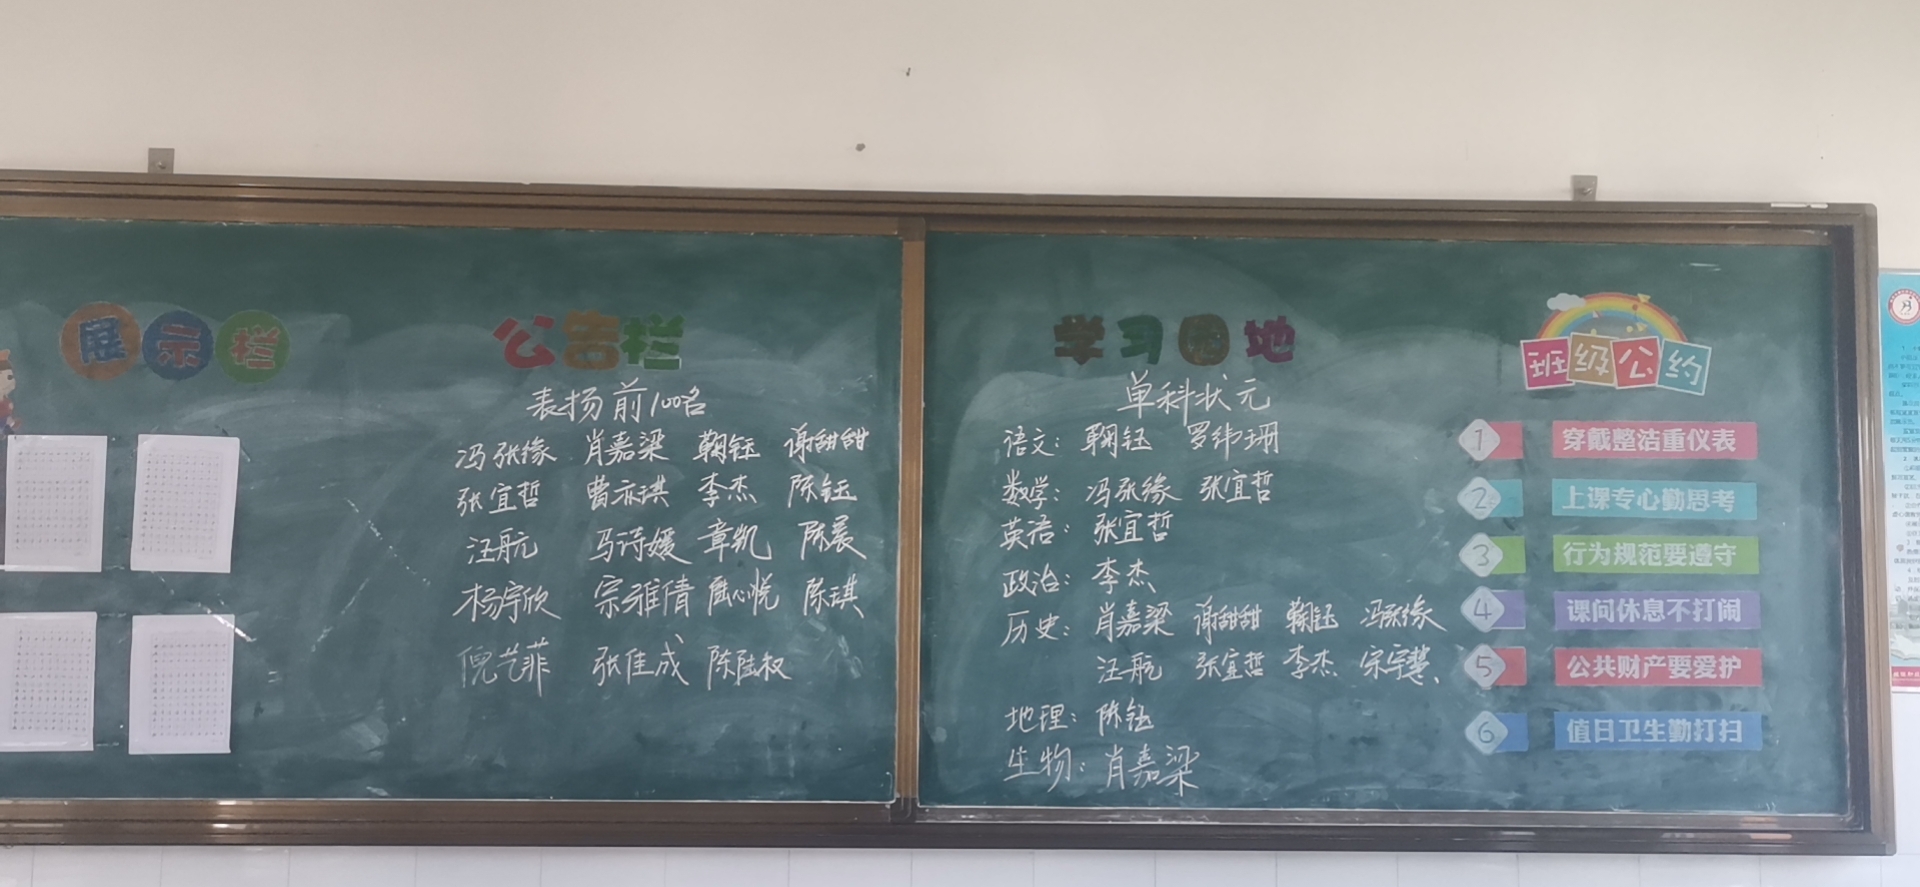 展示栏
公告栏
表扬前100名
冯张缘 肖嘉梁 鞠钰 谢甜甜
张宜哲 曹亦琪 李杰 陈钰
汪航 马诗媛 章凯 陈晨
杨宇欣 宗雅倩 陆心悦 陈琪
倪艺菲 张佳成 陈陆权
学习园地
单科状元
语文: 鞠钰 罗纬珊
数学: 冯张缘 张宜哲
英语: 张宜哲
政治: 李杰
历史: 肖嘉梁 谢甜甜 鞠钰 冯张缘
汪航 张宜哲 李杰 宗宇慧、
地理: 陈钰
生物: 肖嘉梁
班级公约
1 穿戴整洁重仪表
2 上课专心勤思考
3 行为规范要遵守
4 课间休息不打闹
5 公共财产要爱护
6 值日卫生勤打扫